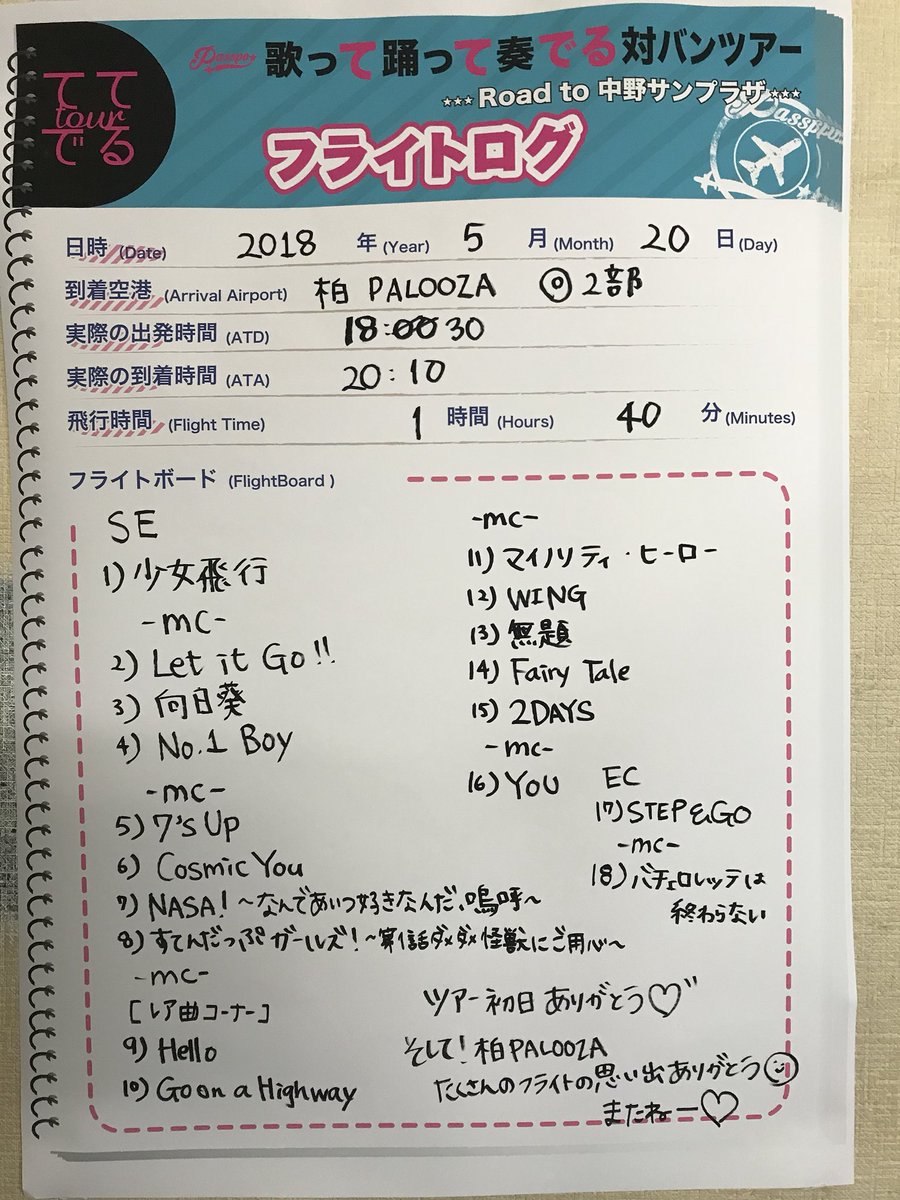 てて
tour
でる
Passpo★
歌って踊って奏でる対バンツアー
★★★Road to 中野サンプラザ★★★
フライトログ
日時 (Date) 2018 年(Year) 5 月(Month) 20 日(Day)
到着空港 (Arrival Airport) 柏 PALOOZA ◎2部
実際の出発時間 (ATD) 18:00 30
実際の到着時間 (ATA) 20:10
飛行時間 (Flight Time) 1 時間 (Hours) 40 分 (Minutes)
フライトボード (FlightBoard )
SE
1) 少女飛行
-mc-
2) Let it Go!!
3) 向日葵
4) No.1 Boy
-mc-
5) 7's Up
6) Cosmic You
7) NASA! ~なんであいつ好きなんだ、嗚呼~
8) すてんだっぷガールズ!~第1話ダメダメ怪獣にご用心~
-mc-
[レア曲コーナー]
9) Hello
10) Go on a Highway
-mc-
11) マイノリティ・ヒーロー
12) WING
13) 無題
14) Fairy Tale
15) 2DAYS
-mc-
16) YOU
EC
17) STEP&GO
-mc-
18) バチェロレッテは
終わらない
ツアー初日ありがとう♡
そして!柏PALOOZA
たくさんのフライトの思い出ありがとう☺
またねー♡